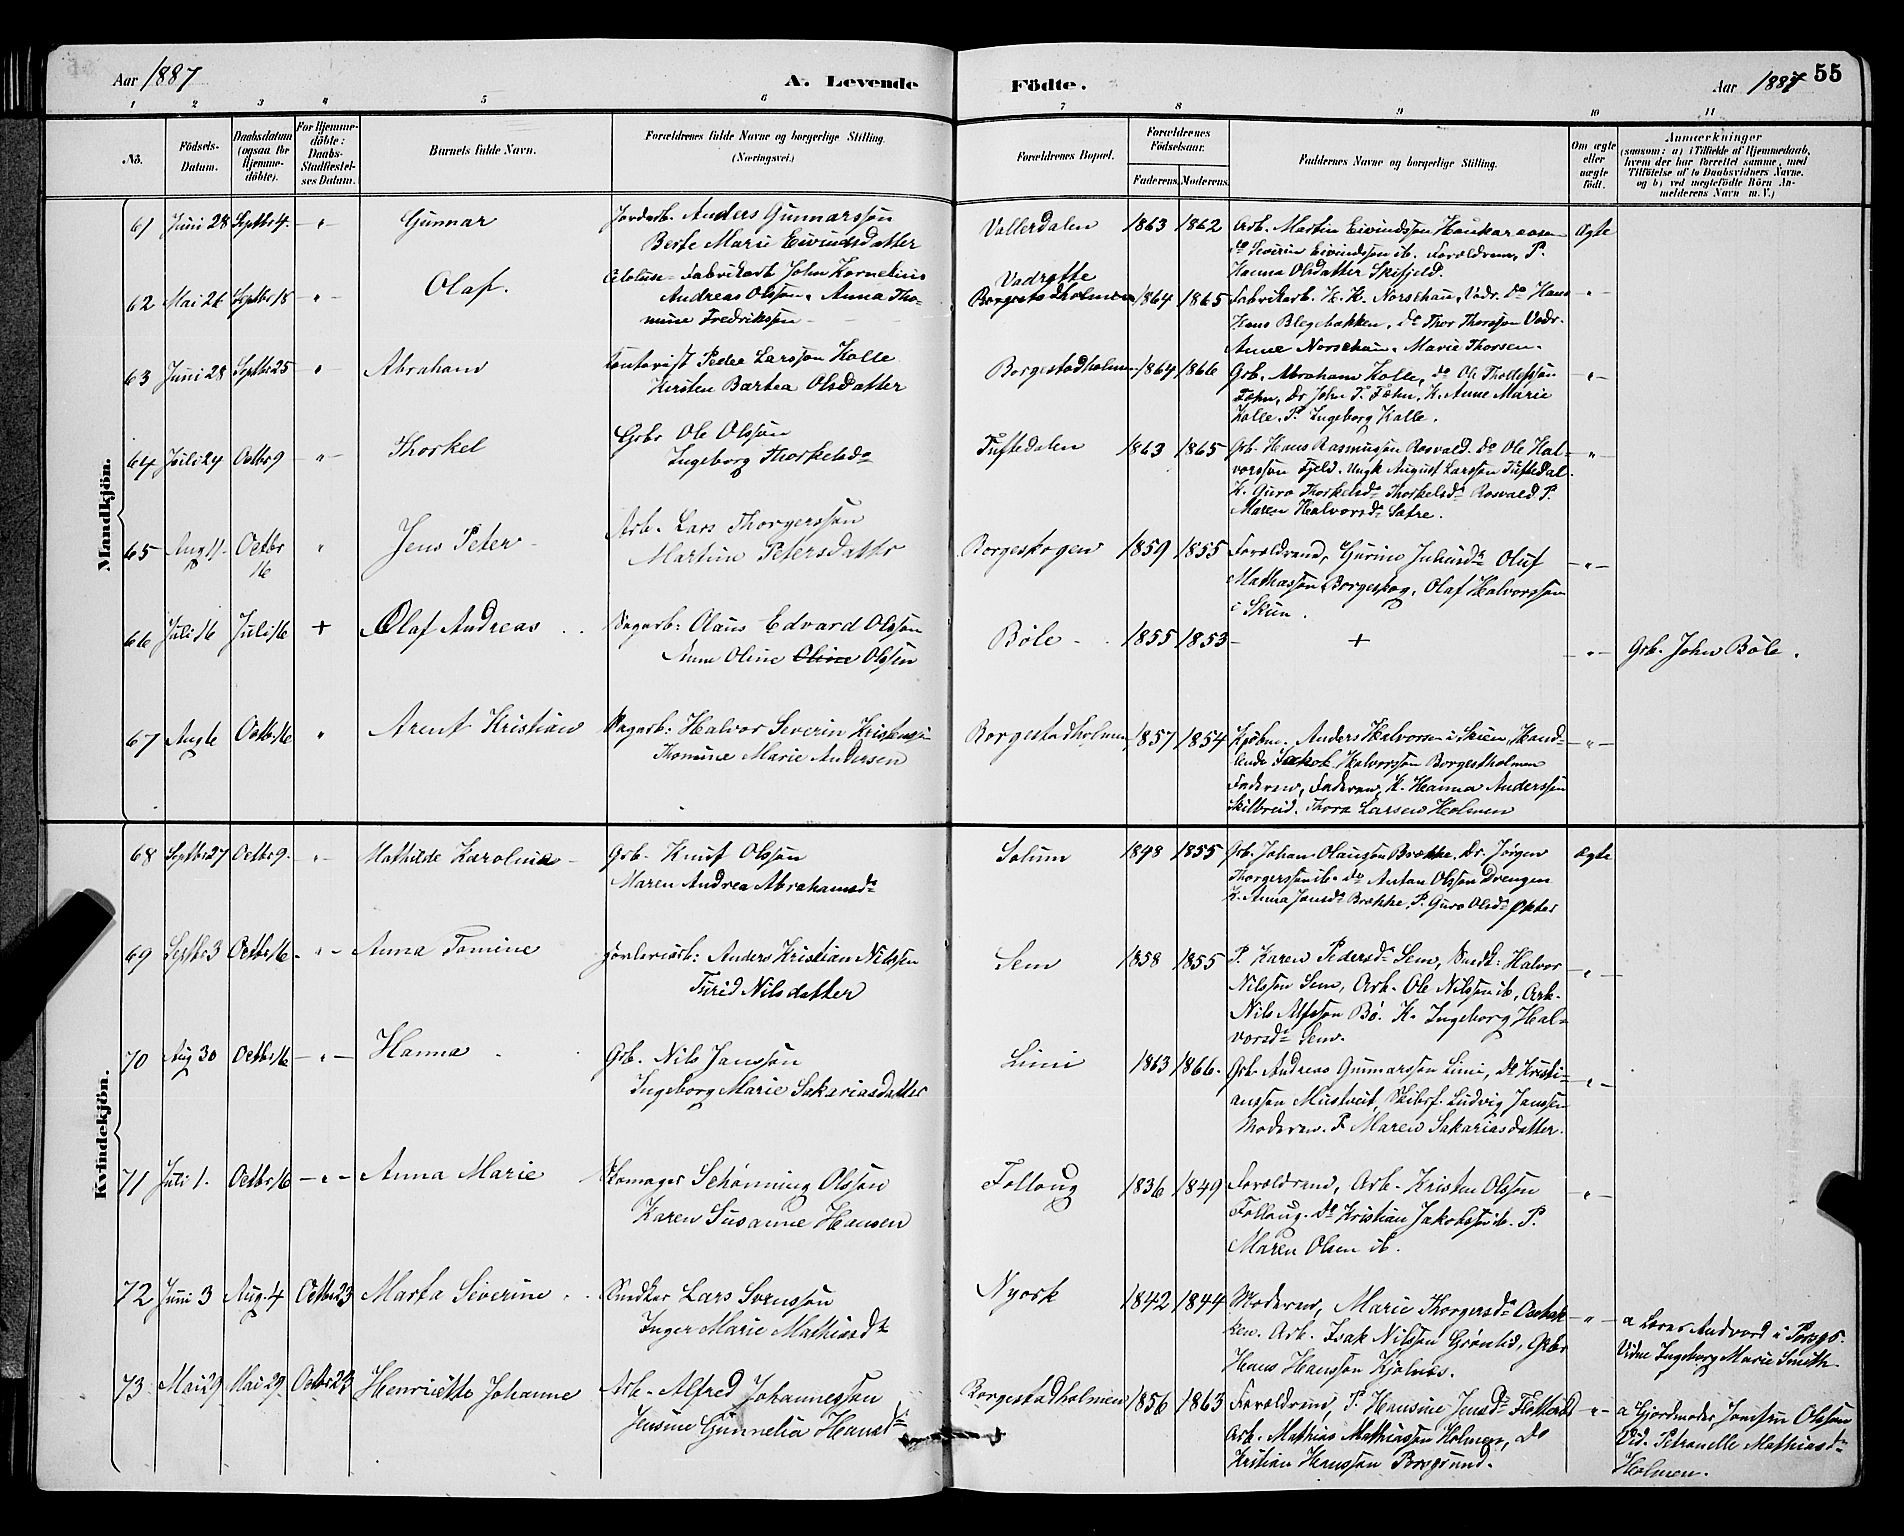 Aar 1887
A. Levende
Födte.
Aar 1887
55
1 2 3 4 5 6 7 8 9 10 11
No.
Födsels-
Datum.
Daabsdatum
(ogsaa for
Hjemme-
döbte).
For Hjemme-
döbte:
Daabs-
Stadfæstel-
ses Datum.
Barnets fulde Navn.
Forældrenes fulde Navne og borgerlige Stilling.
(Næringsvei.)
Forældrenes Bopæl.
Forældrenes
Födselsaar.
Faderens. Moderens.
Faddernes Navne og borgerlige Stilling.
Om ægte
eller
uægte
födt.
Anmærkninger
(saasom: a) i Tilfælde af Hjemmedaab,
hvem der har forrettet samme, med
Tilföielse af to Daabsvidners Navne,
og b) ved uægtefödte Börn An-
melderens Navn m. V.)
Mandkjön.
61 Juni 28 Septbr 4. -"- Gunnar
Jordarb. Anders Gunnarssön
Berte Marie Eivindsdatter
Vallerdalen 1863 1862
Arb. Martin Eivindssön Haukaraasen
do Severin Eivindssön ib. Forældrene, P.
Hanna Olsdatter Skifjeld.
Ægte
62 Mai 26 Septbr 18 -"- Olaf.
Celulose-Fabrikarb John Kornelius
Andreas Olssön, Anna Tho-
mine Fredrikssen
Vadrette
Borgestadholmen 1864 1865
Fabrikarb. H. H. Norschau, Vadr. do Hans
Hans Blegebakken, do Thor Thorssön Vadr.
Anne Norschau, Marie Thorsen.
-"-
63 Juni 28 Septbr 25 " Abraham
Kontorist Peder Larssön Kolle
Kirsten Bartea Olsdatter
Borgestadholmen 1864 1866
Grb. Abraham Kolle, do Ole Thollefssön
Föhn, Dr John P. Föhn, K. Anne Marie
Kolle. P. Ingeborg Kolle.
-"-
64 Juli 24 Octbr 9 -"- Thorkel
Gbr Ole Olssön
Ingeborg Thorkelsdr
Tuftedalen 1863 1865
Grb. Hans Rasmussön Rosvald. Do Ole Hal-
vorssön Fjeld. Ungk August Larssen Tuftedal.
K. Guro Thorkelsdr Thorkelsdr Rosvald P.
Maren Halvorsdr Sætre.
"
65 Aug 11. Octbr
16
" Jens Peter
Arb. Lars Thorgerssön
Martine Petersdatter
Borgeskogen 1859 1855
Forældrene, Gurine Juliusdr Oluf
Mathiassön Borgeskog, Olaf Halvorssön
i Skien.
-"-
66 Juli 16 Juli 16 + Olaf Andreas
Sagarb: Olaus Edvard Olssön
Anne Oline Oline Olssen
Böle 1855 1853
+
-"-
Grb. John Böle.
67 Aug 6 Octbr 16 " Arent Kristian
Sagarb: Halvor Severin Kristenssön
Thomine Marie Andersen
Borgestadholmen 1857 1854
Kjöbm. Anders Halvorsen i Skien, Hand-
lende Jakob Halvorssön Borgestholmen
Faderen, Faderen, K. Hanna Anderssen
Skilbreid. Thora Larsen Holmen
-"-
Kvindekjön.
68 Septbr 27 Octbr 9. -"- Mathilde Karoline
Grb. Knut Olssön
Maren Andrea Abrahamsdr
Solum 1848 1855
Grb. Johan Olaussön Brække. Dr. Jörgen
Thorgerssön ib. do Anton Olssön Drengen
K. Anna Jonsdr Brække, P. Guro Olsdr Økter
Ægte
69 Septbr 3 Octbr 16 -"- Anna Tomine
Jordveiarb: Anders Kristian Nilssen
Turid Nilsdatter
Sem 1858 1855
P. Karen Pedersdr Sem, Smed: Halvor
Nilssön Sem, Arb. Ole Nilssön ib, Arb.
Nils Alfssön Bö. K. Ingeborg Hal-
vorsdr Sem.
-"-
70 Aug 30 Octbr 16 -"- Hanna
Grb. Nils Janssön
Ingeborg Marie Sakariasdatter
Limi 1863 1866.
Grb. Andreas Gunnarssön Limi, do Kristi-
anssen Mustveit, Skibsf. Ludvig Janssen
Moderen. P. Maren Sakariasdatter.
-"-
71 Juli 1. Octbr 16 -"- Anna Marie
Skomager Schönning Olssön
Karen Susanne Hansen
Follaug 1836 1849
Forældrene, Arb. Kristen Olssön
Follaug. do Kristian Jakobssön ib. P.
Maren Olsen ib.
-"-
72 Juni 3 Aug. 4 Octbr 23 Marta Siverine
Snedker Lars Svenssön
Inger Marie Mathiasdr
Nyork 1842 1844
Moderen, Marie Thorgersdr Osebak-
ken. Arb. Isak Nilssön Grönlid, Gbr
Hans Hanssön Kjölnes.
-"-
a Lærer Andvord i Porsgr.
Vidne Ingeborg Marie Smith
73 Mai 29 Mai 29. Octbr 23 Henriette Johanne
Arb. Alfred Johannessön
Jensine Gunnelia Hansdr
Borgestadholmen 1856 1863
Forældrene, P. Hansine Jensdr Flotten
Arb. Mathias Mathiassön Holmen, do
Kristian Hanssön Porsgrund.
-"-
a Gjordmoder Jonsen Olssön
Vid. Petranelle Mathiasdr
Holmen.